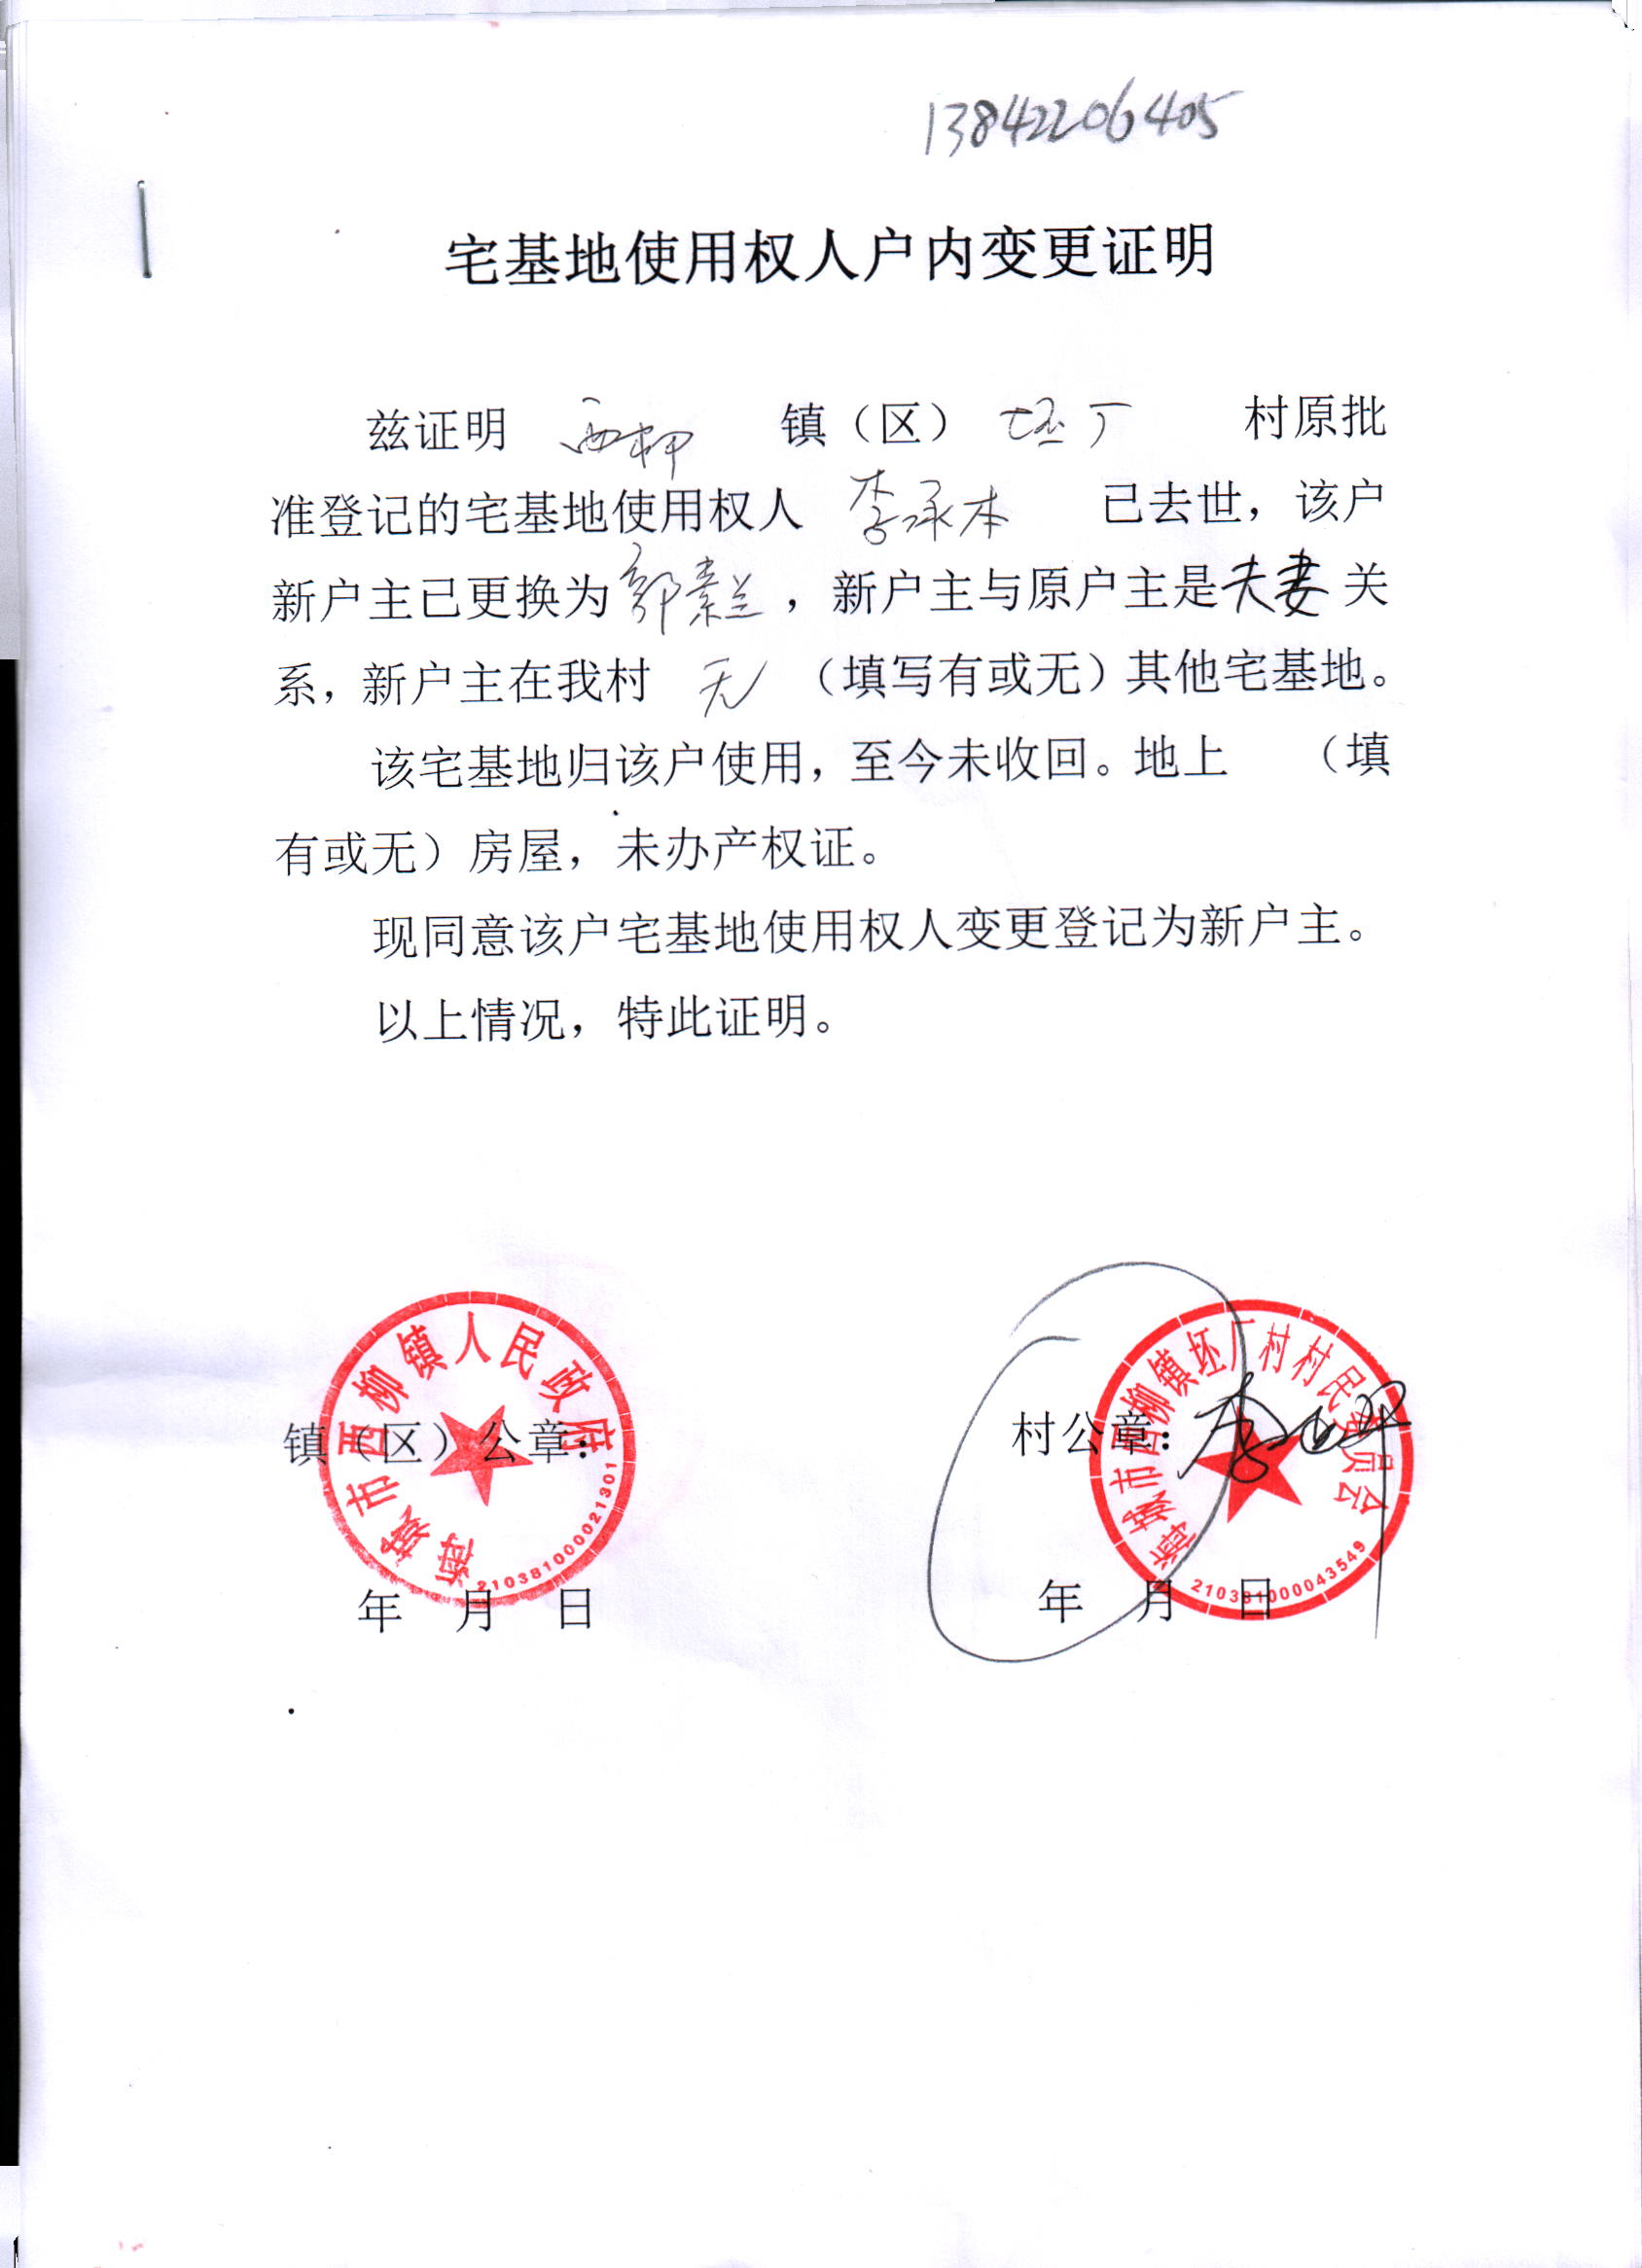 13842206405
宅基地使用权人户内变更证明
兹证明 西柳 镇（区） 坯厂 村原批
准登记的宅基地使用权人 李承本 已去世，该户
新户主已更换为郭素兰，新户主与原户主是夫妻关
系，新户主在我村 无 （填写有或无）其他宅基地。
该宅基地归该户使用，至今未收回。地上 （填
有或无）房屋，未办产权证。
现同意该户宅基地使用权人变更登记为新户主。
以上情况，特此证明。
海城市西柳镇人民政府
镇（区）公章：
2103810000021301
年 月 日
海城市西柳镇坯厂村村民委员会
村公章：
210381000043549
年 月 日